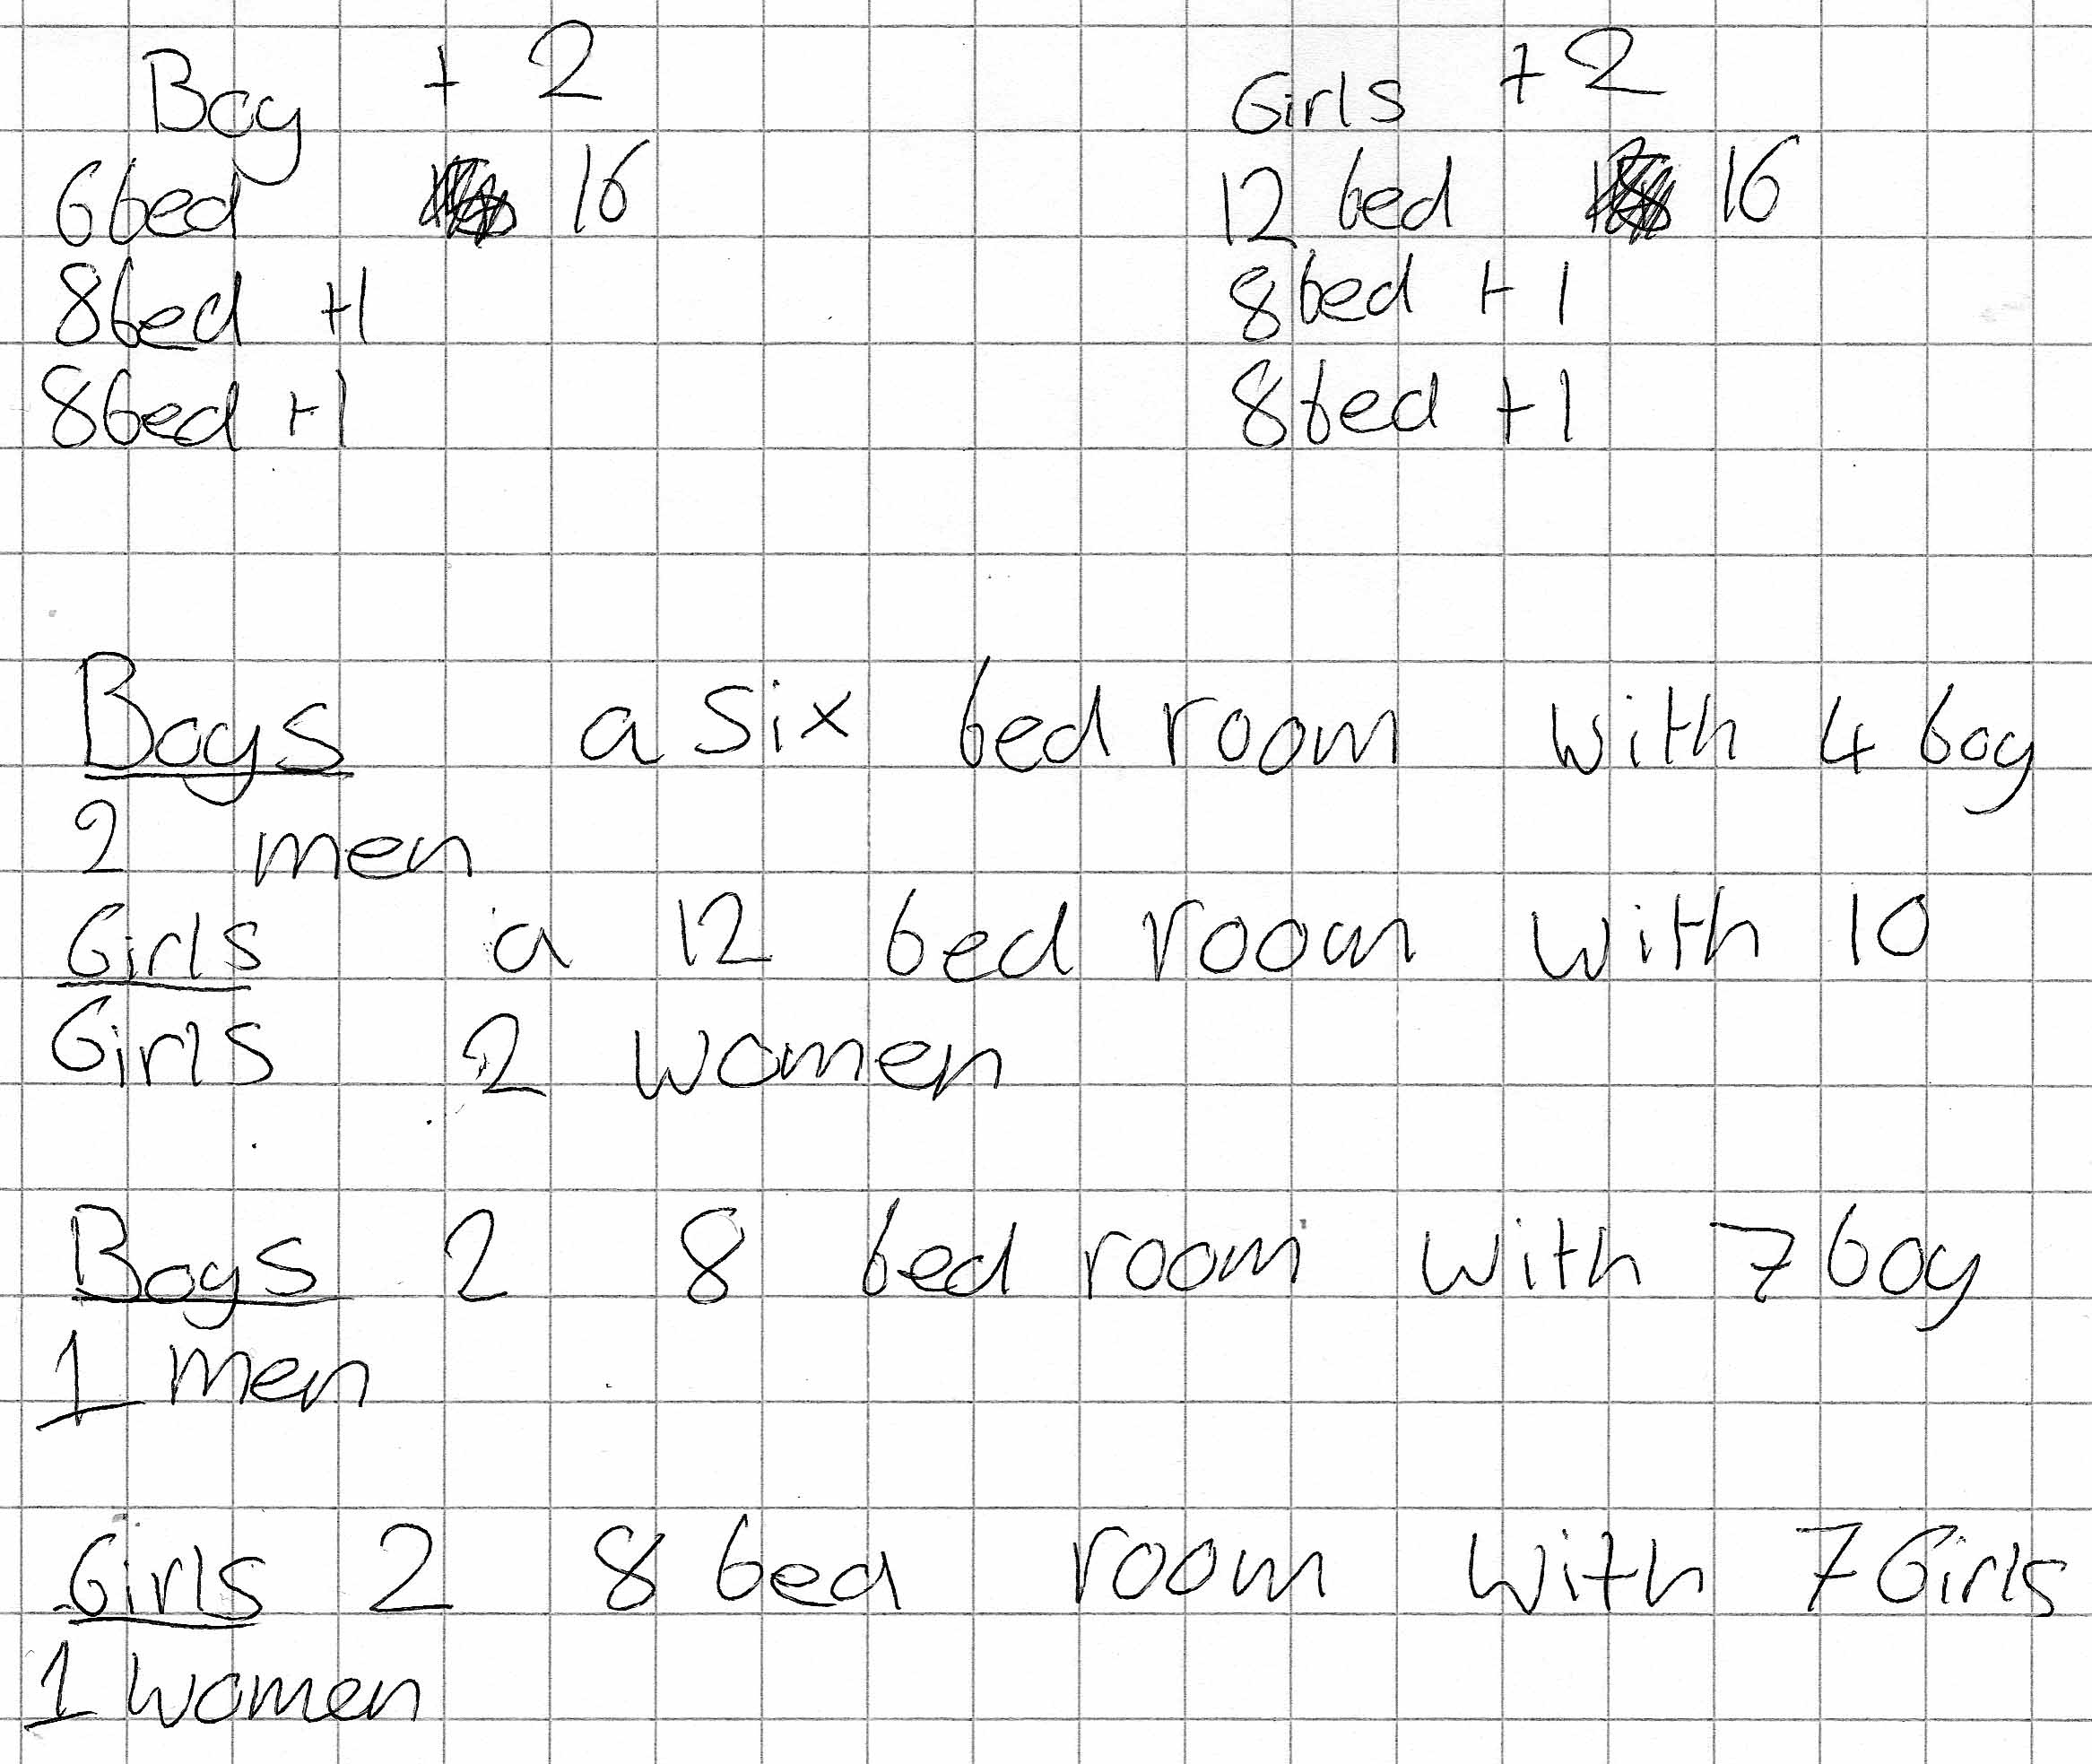 Boy + 2 Girls + 2
6 bed 16 12 bed 16
8 bed +1 8 bed + 1
8 bed +1 8 bed +1
Boys a six bed room with 4 boy
2 men
Girls a 12 bed room with 10
Girls 2 women
Boys 2 8 bed room with 7 boy
1 men
Girls 2 8 bed room with 7 Girls
1 women